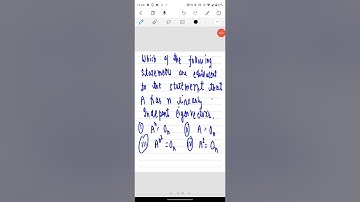 Which of the following
statements are equivalent
to the statement that
A has n linearly
Indepent eigenvectors.
(i) A^n = O_n (ii) A = O_n
(iii) A^{n^2} = O_n (iv) A^2 = O_n